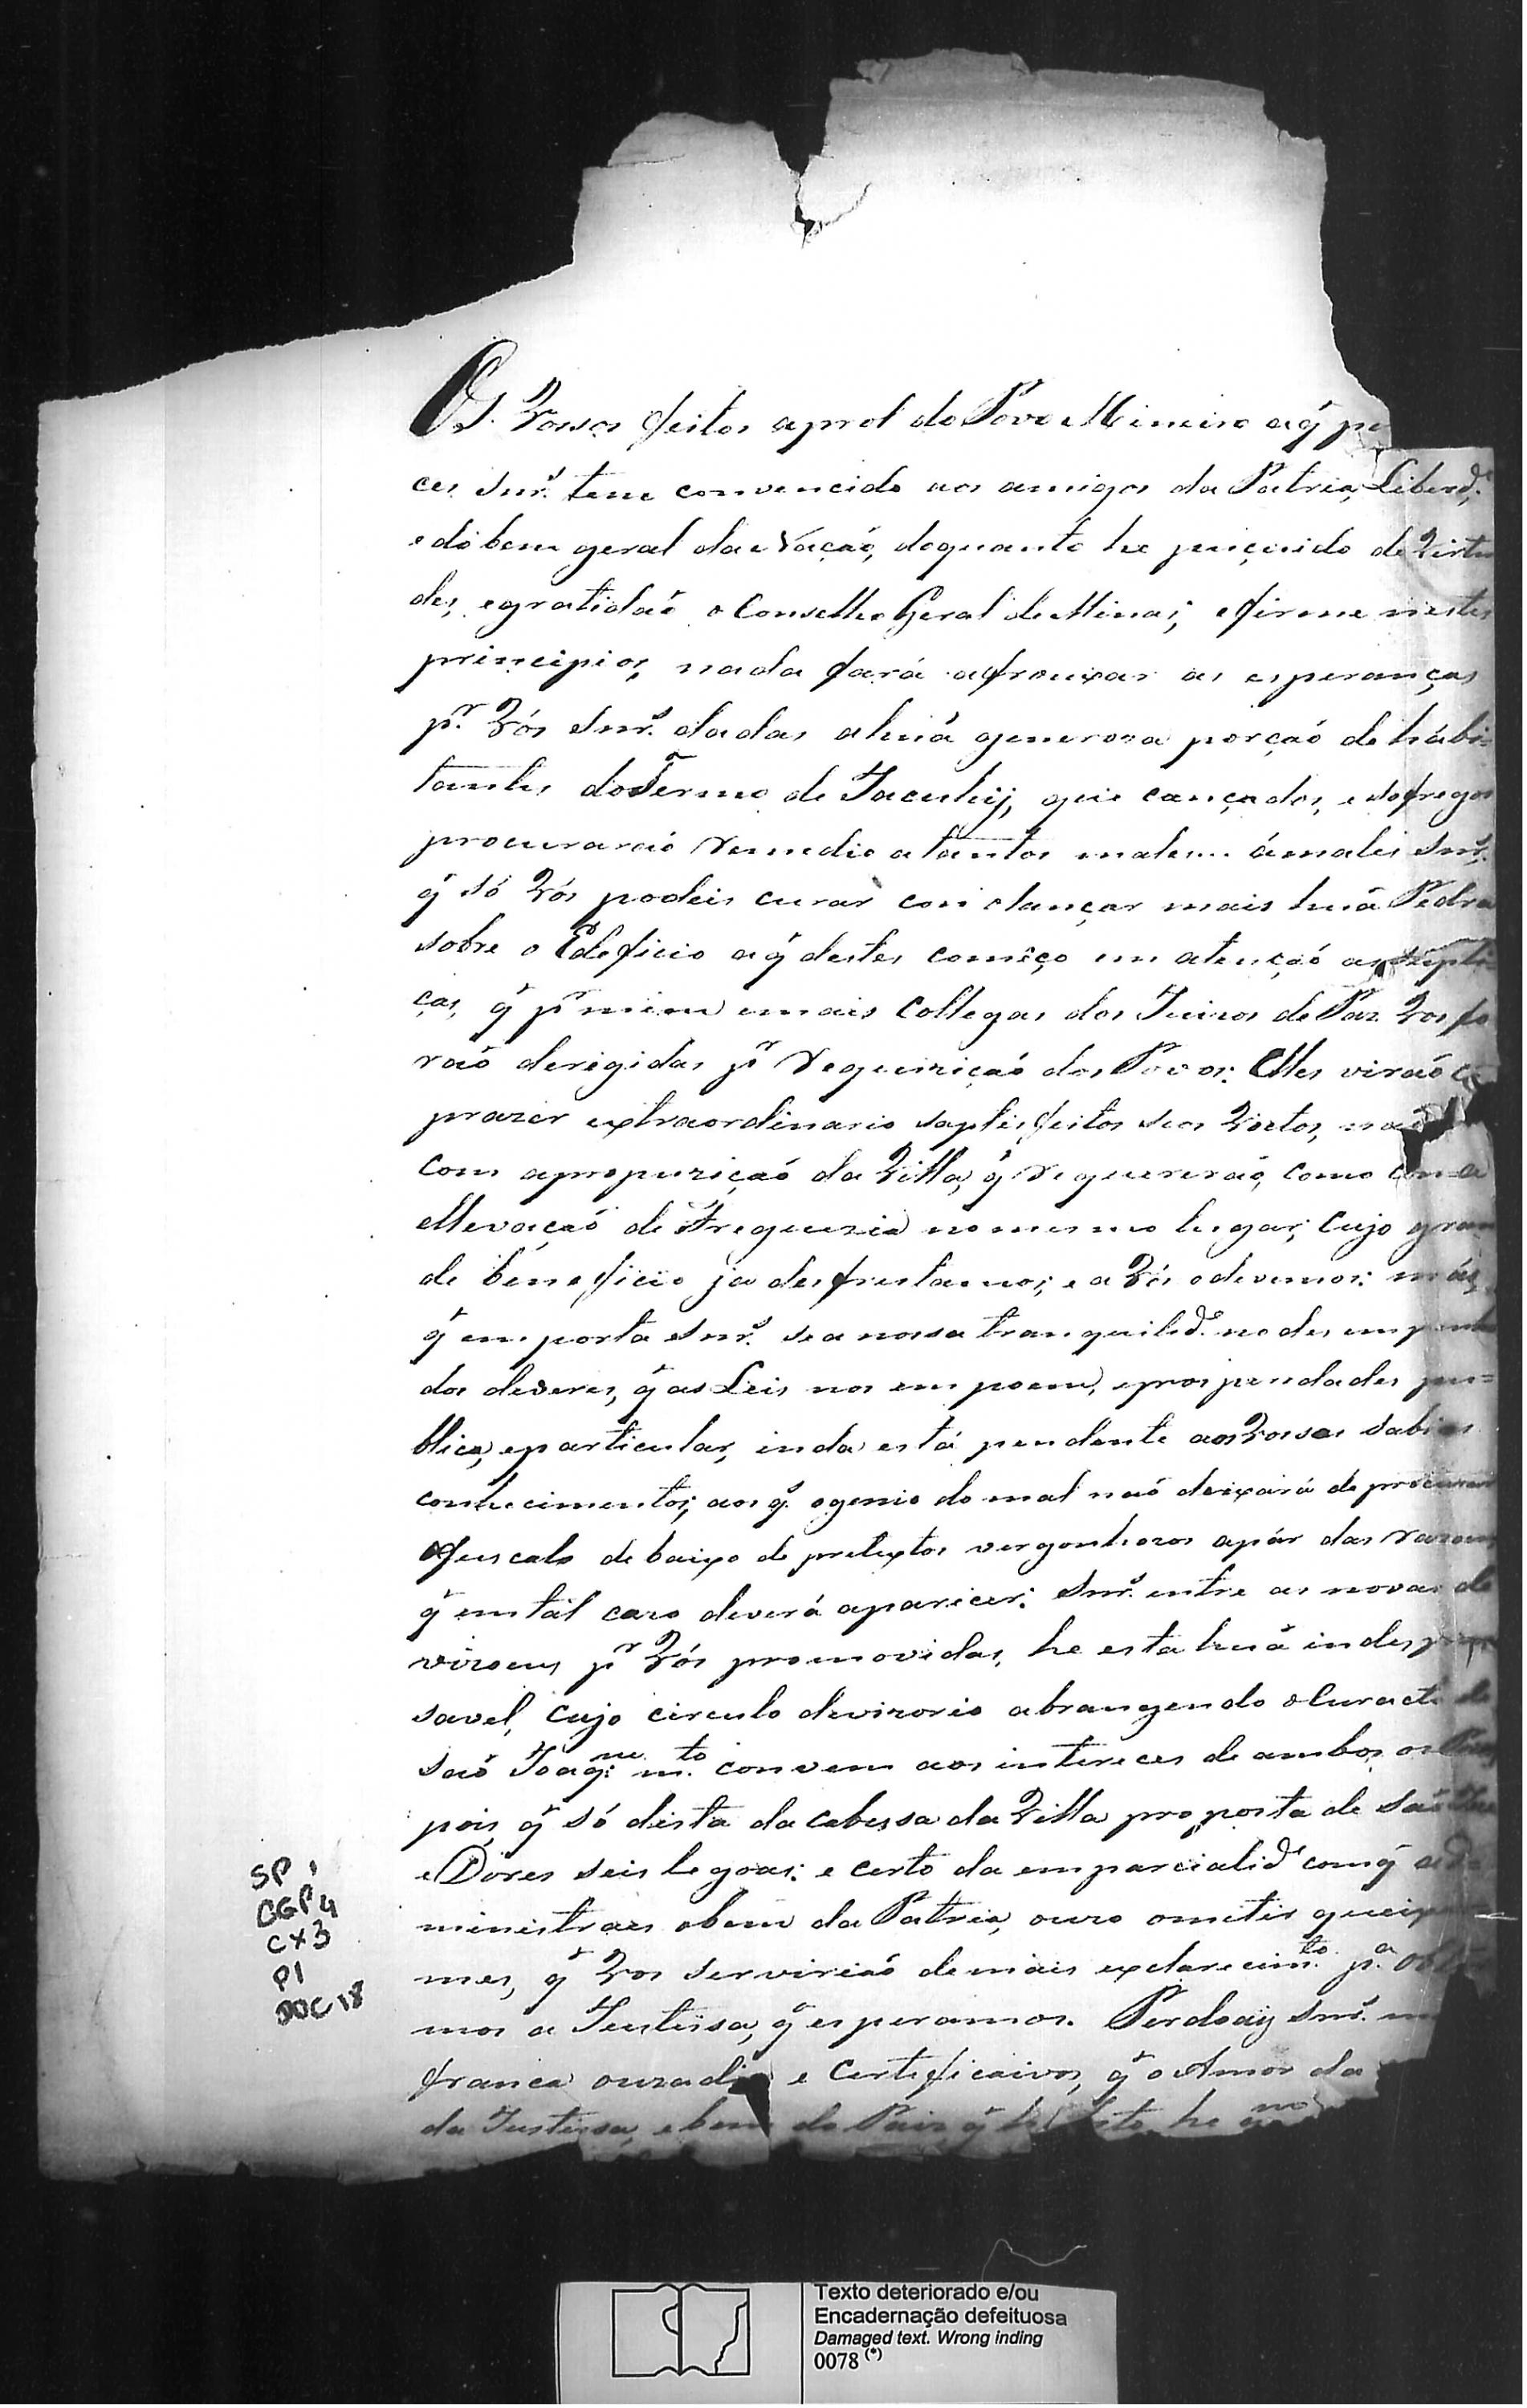 Os Vossos feitos aprol do Povo Mineiro aq̃
ces Snr.s tem convencido aos amigos da Patria, Liberd.e
e do bem geral da Nação, de quanto he puçuido de Virtu
des, egratidaõ o Conselho Geral de Minas; efirme nestes
principios, nada fará afrouxar as esperanças
p.r Vós Snr.s dadas ahuã generosa porçaõ de habi=
tantes doTermo de Jacuhij, que cançados, e sofregos
procuraraõ remedio atantos males... ámales Snr.s
q̃ só Vós podeis curar com olançar mais huã Pedra
sobre o Edeficio aq̃ destes comêço em atençaõ as supli
cas, q̃ p.r mim emais Collegas dos Juizos de Paz Vos fo
raõ deregidas p.r requiziçaõ dos Povos: Elles viraõ
prazer extraordinario saptisfeitos seos Vottos, naõ
com apropuziçaõ da Villa, q̃ requereraõ, como com a
ellevaçaõ de Freguezia nomesmo lugar; Cujo gran
de beneficio ja desfrutamos; e a Vós odevemos: más
q̃ emporta Snr.s se a nossa tranquilid.e no desempenho
dos deveres, q̃ as Leis nos empoem, eprosperidades pu=
blica, eparticular, inda está pendente aos Vossos sabios
conhecimentos; aos q.s ogenio do mal naõ deixará de procurar
ofuscalo debaixo de pretextos vergonhozos apár das razoens
q̃ emtál cazo deverá aparicer: Snr.s entre as novas de
vizoens p.r Vós promovidas, he esta huã indespen
savel, Cujo circulo devizorio abrangendo oCurato de
Saõ Joaq.m m.to convem aos intereces de ambos os
pois q̃ só dista da cabessa da Villa proposta de
e Dores seis legoas: e certo da emparcialid.e comq̃ ad
ministraes obem da Patria, ouzo omitir queixu
mes, q̃ Vos serviriaõ demais exclarecim.to p.a obter
mos a Justissa, q̃ esperamos. Perdoay Snr.s
franca ouzadia e Certeficaivos, q̃ o Amor da
da Justissa, ebem do Paiz, q̃ he
SP 1
CGP 4
CX3
P1
DOC 18
Texto deteriorado e/ou
Encadernação defeituosa
Damaged text. Wrong inding
0078 (*)